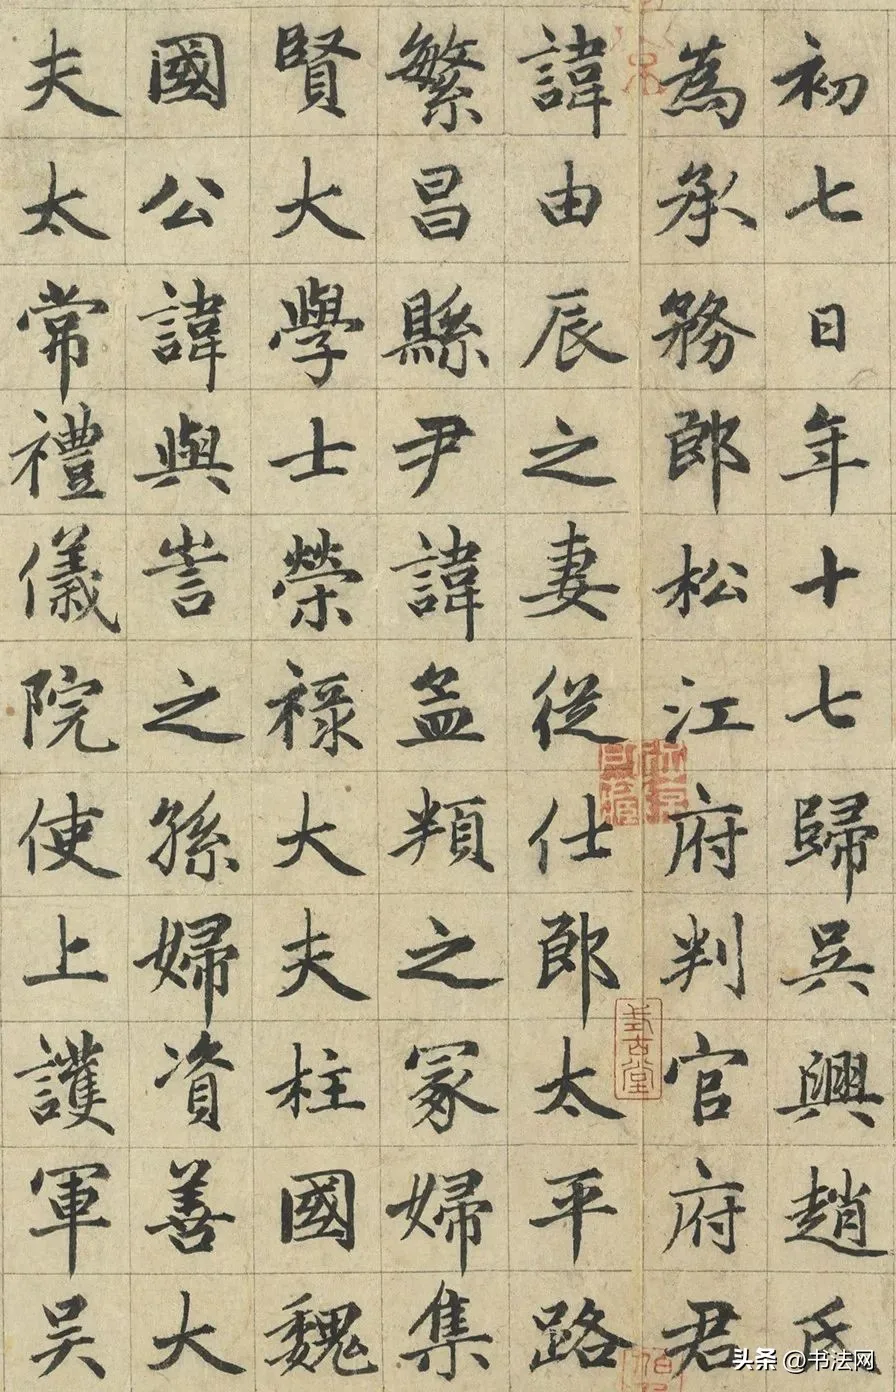 初七日年十七歸吳興趙氏
為承務郎松江府判官府君
諱由辰之妻從仕郎太平路
繁昌縣尹諱孟頖之冢婦集
賢大學士榮祿大夫柱國魏
國公諱與訔之孫婦資善大
夫太常禮儀院使上護軍吳
頭条 @书法网